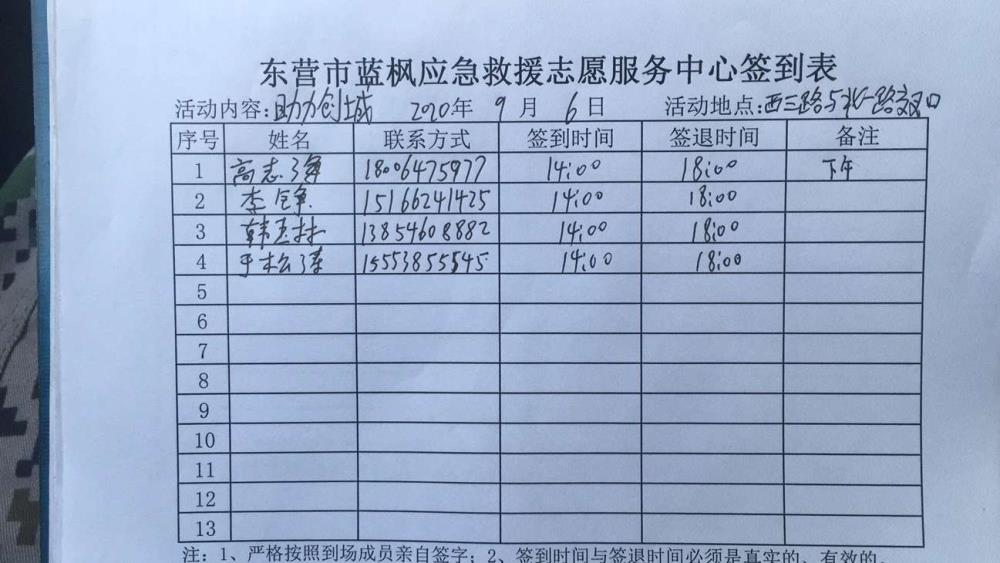 东营市蓝枫应急救援志愿服务中心签到表
活动内容:助力创城 2020年 9 月 6 日 活动地点:西三路与北一路交叉口
序号 姓名 联系方式 签到时间 签退时间 备注
1 高志 18006475977 14:00 18:00 下午
2 李 15166241425 14:00 18:00
3 韩 13854608882 14:00 18:00
4 于松 15553855545 14:00 18:00
5
6
7
8
9
10
11
12
13
注:1、严格按照到场成员亲自签字;2、签到时间与签退时间必须是真实的、有效的。